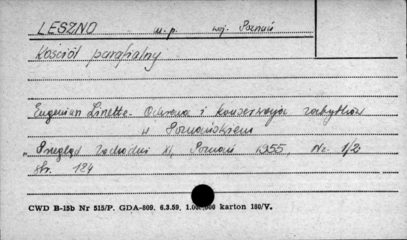 LESZNO m.p. woj. Poznań
Kościół parafialny
Eugeniusz Linette - Ochrona i konserwacja zabytków
w Poznańskiem
"Przegląd Zachodni XI, Poznań 1955, Nr. 1/2
str. 184
CWD B-15b Nr 515/P. GDA-809. 6.3.59. 1.000.000 karton 180/V.